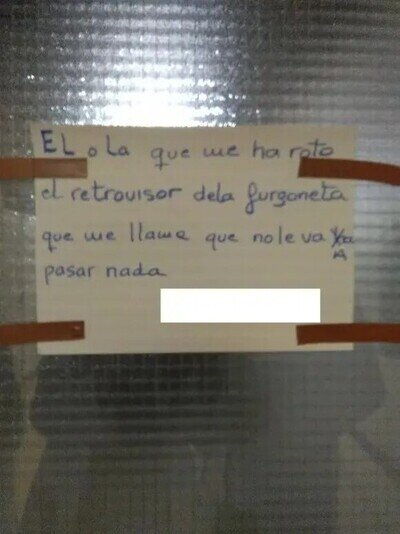 EL o La que me ha roto
el retrovisor dela furgoneta
que me llame que nole va
A
pasar nada